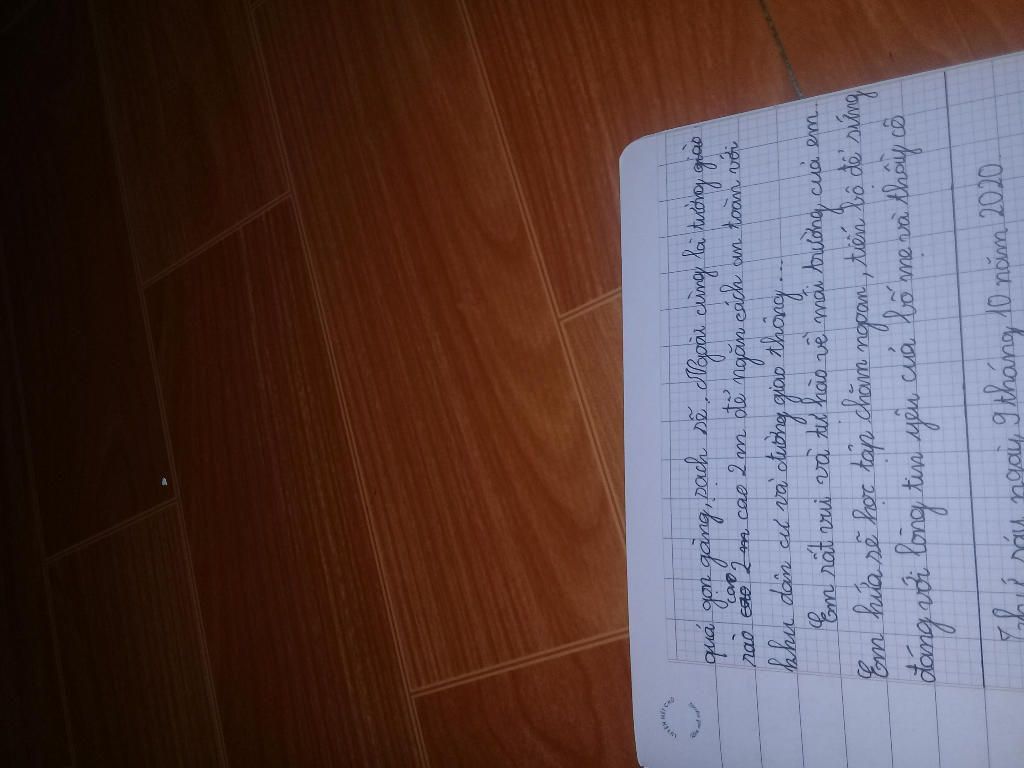 quá gọn gàng, sạch sẽ. Ngoài cùng là tường giào
rào cao 2 m cao 2 m để ngăn cách an toàn với
khu dân cư và đường giao thông ...
Em rất vui và tự hào về mái trường của em.
Em hứa sẽ học tập chăm ngoan, tiến bộ để xứng
đáng với lòng tin yêu của bố mẹ và thầy cô
Thứ sáu ngày 9 tháng 10 năm 2020